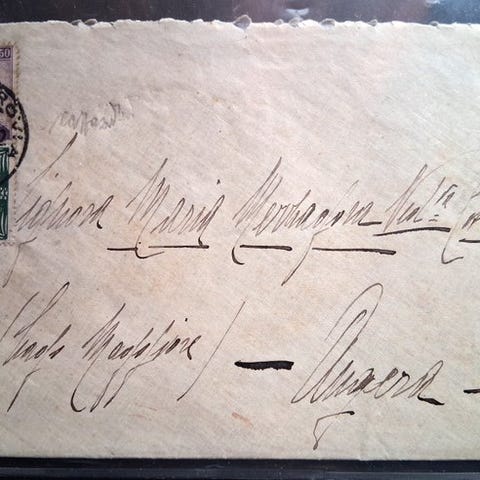 50
Signora Maria Merzagora Ved.ᵃ
(Lago Maggiore) — Angera —